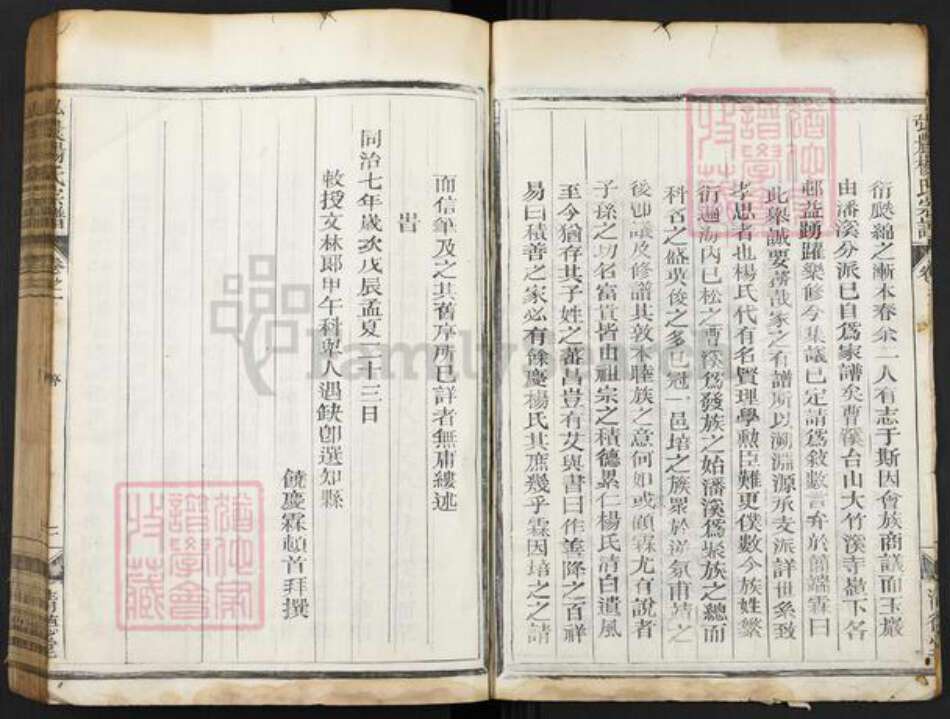 弘農楊氏宗譜
衍颬綿之漸本春余一人有志于斯因會族商議而玉巖
由潘溪分派已自爲家譜矣曹溪台山大竹溪寺壋下各
邨益踴躍樂修今集議已定請爲敘數言弁於簡端霖曰
此舉誠要務哉家之有譜所以溯淵源承支派詳世系致
孝思者也楊氏代有名賢理學勲臣難更僕數今族姓繁
衍遍海內已松之曹溪爲發族之始潘溪爲聚族之總而
科名之盛英俊之多已冠一邑培之族眾於逆氛甫靖之
後卽議及修譜其敦本睦族之意何如或顧霖尤有說者
子孫之功名富貴皆由祖宗之積德累仁楊氏清白遺風
至今猶存其子姓之蕃昌豈有艾與書曰作善降之百祥
易曰積善之家必有餘慶楊氏其庶幾乎霖因培之之請
而信筆及之其舊序所已詳者無庸縷述
旹
同治七年歲次戊辰孟夏二十三日
敕授文林郎甲午科舉人遇缺卽選知縣
饒慶霖頓首拜撰
卷之一
序
二
道仙家譜學會收藏
道仙家譜學會收藏
FamilySearch